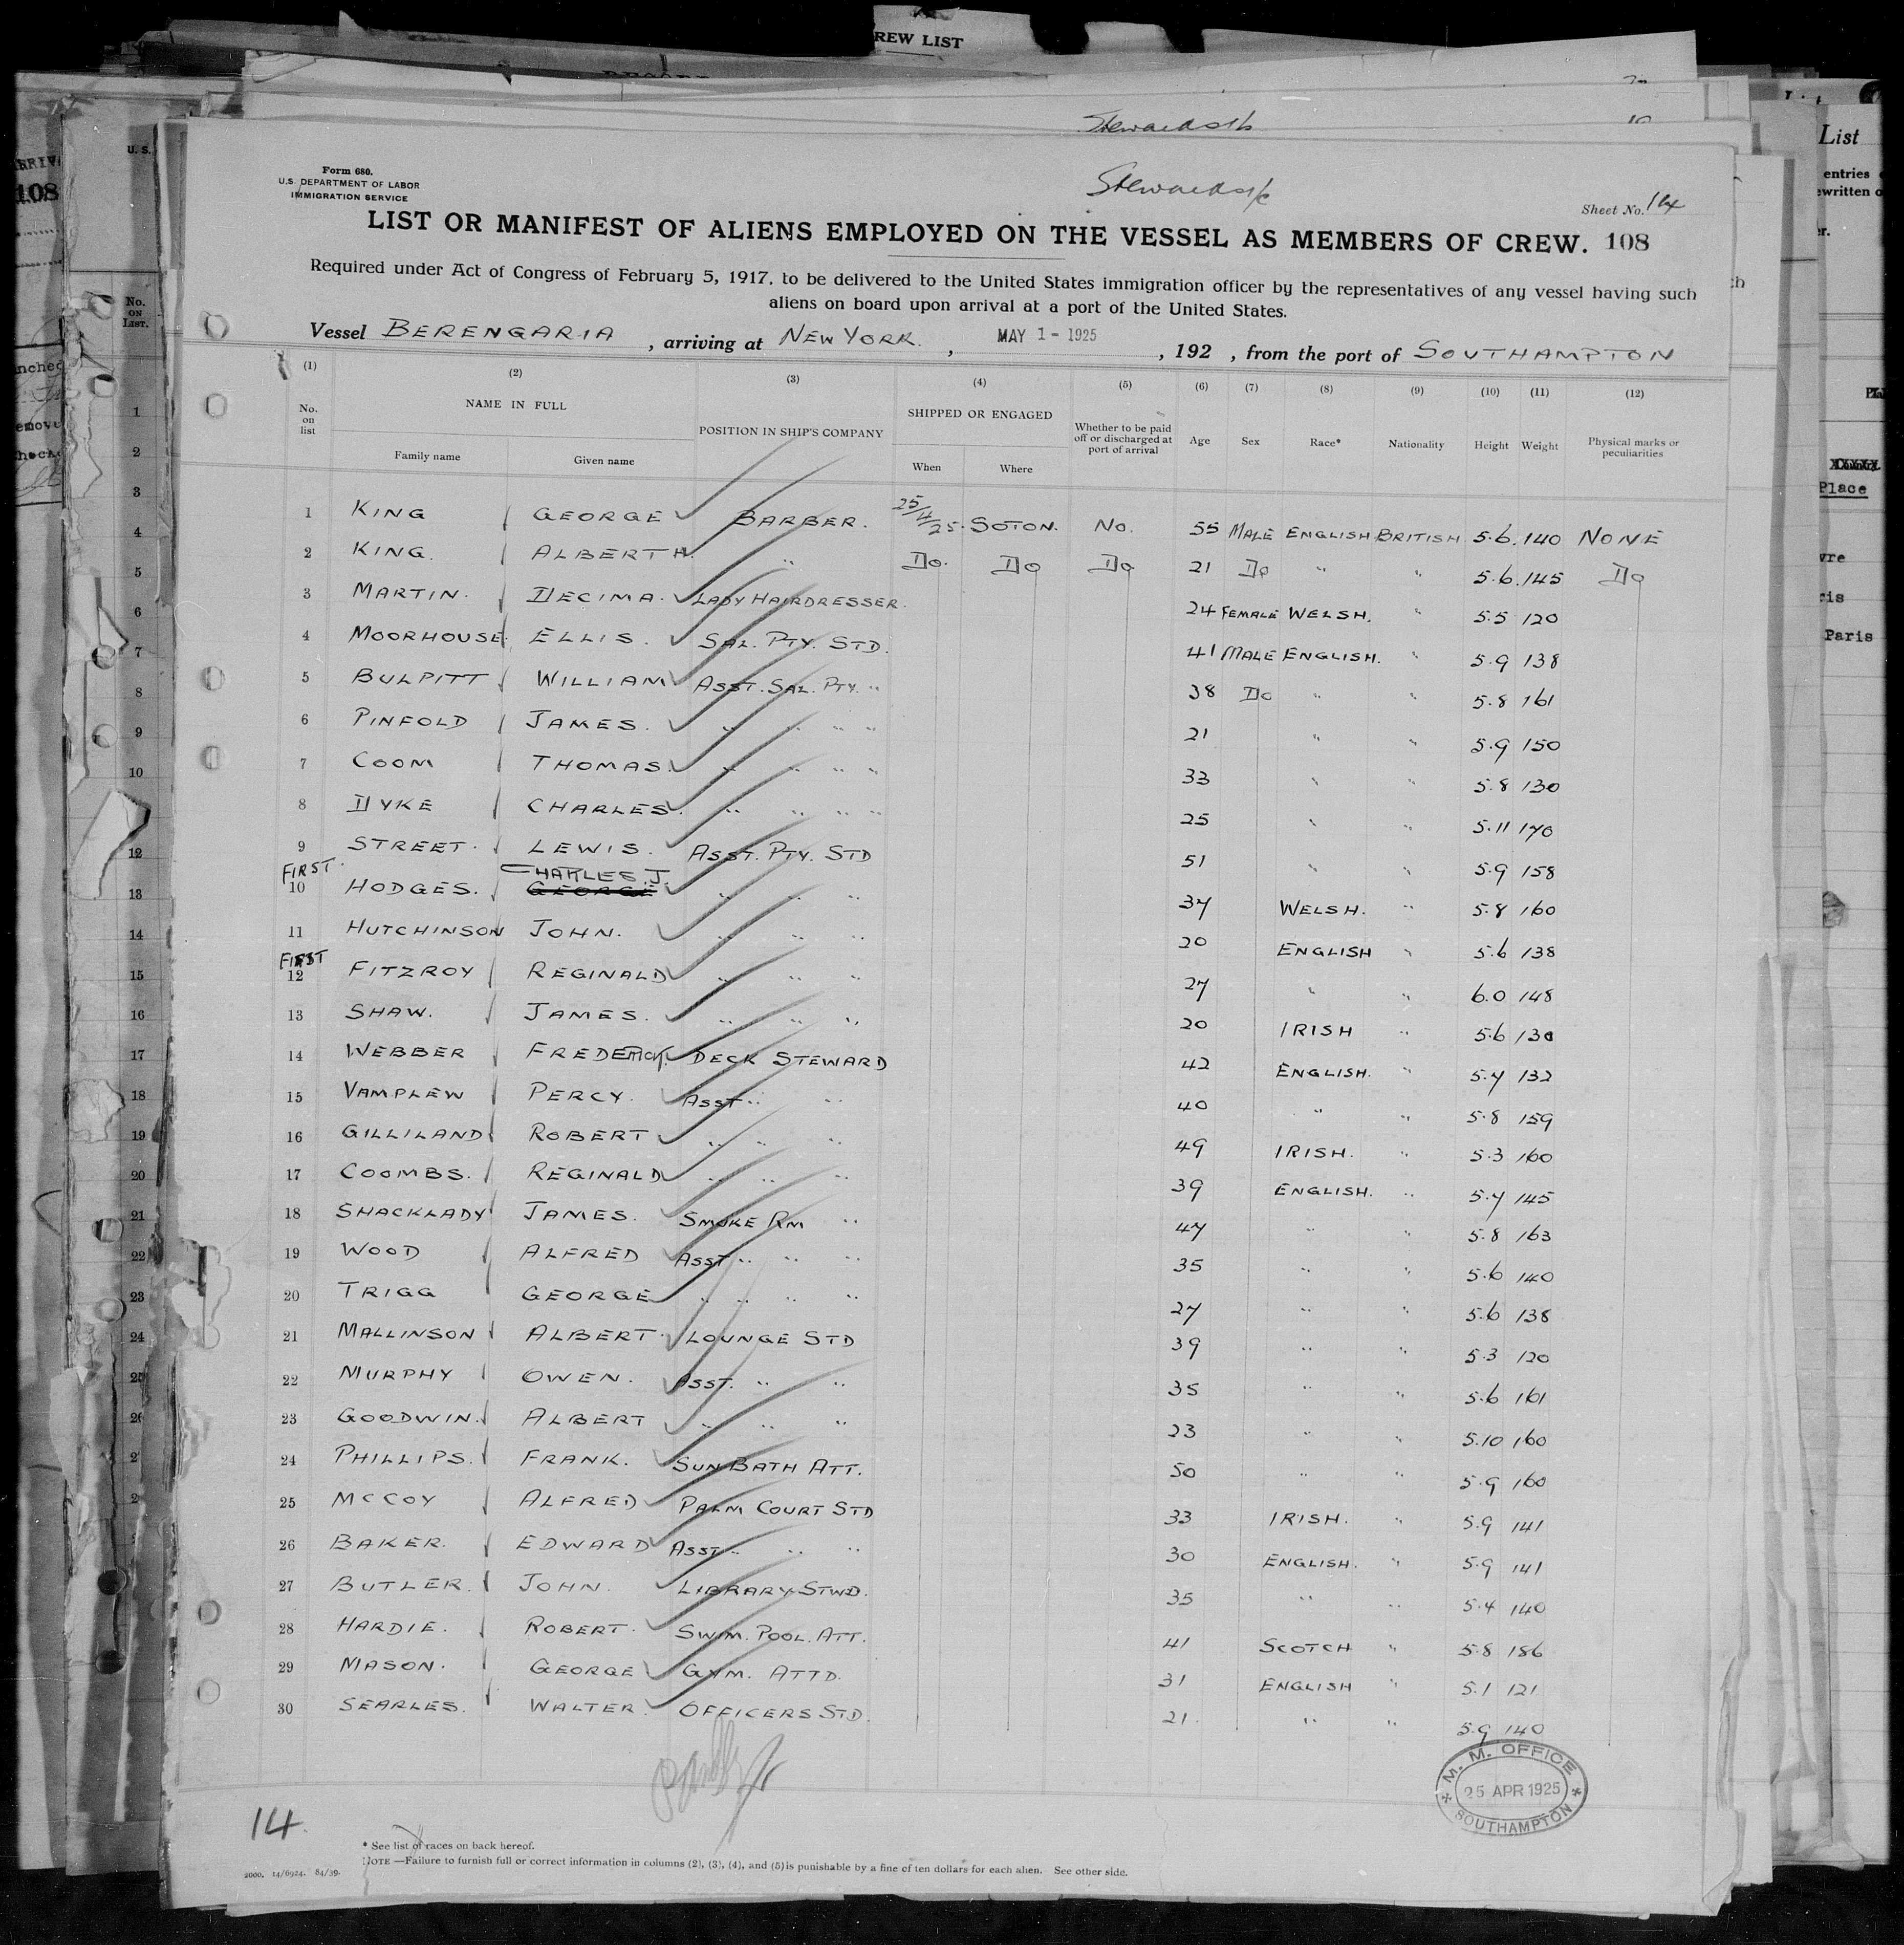 REW LIST
Stewards
Form 680.
U.S. DEPARTMENT OF LABOR
IMMIGRATION SERVICE
Stewards
Sheet No. 14
LIST OR MANIFEST OF ALIENS EMPLOYED ON THE VESSEL AS MEMBERS OF CREW. 108
Required under Act of Congress of February 5, 1917, to be delivered to the United States immigration officer by the representatives of any vessel having such
aliens on board upon arrival at a port of the United States.
Vessel BERENGARIA, arriving at NEW YORK, MAY 1 - 1925, 192 , from the port of SOUTHAMPTON
(1) (2) (3) (4) (5) (6) (7) (8) (9) (10) (11) (12)
No. on list NAME IN FULL POSITION IN SHIP'S COMPANY SHIPPED OR ENGAGED Whether to be paid off or discharged at port of arrival Age Sex Race* Nationality Height Weight Physical marks or peculiarities
Family name Given name When Where
1 KING GEORGE BARBER. 25/4/25. SOTON. No. 55 MALE ENGLISH BRITISH 5.6. 140 NONE
2 KING. ALBERT H. " Do. Do Do 21 Do " " 5.6. 145 Do
3 MARTIN. DECIMA. LADY HAIRDRESSER. 24 FEMALE WELSH. " 5.5 120
4 MOORHOUSE. ELLIS. SAL. PTY. STD. 41 MALE ENGLISH. " 5.9 138
5 BULPITT WILLIAM ASST. SAL. PTY. " 38 Do " " 5.8 161
6 PINFOLD JAMES. " " " " 21 " " 5.9 150
7 COOM THOMAS. " " " " 33 " " 5.8 130
8 DYKE CHARLES. " " " " 25 " " 5.11 170
9 STREET. LEWIS. ASST. PTY. STD 51 " " 5.9 158
FIRST. CHARLES. J.
10 HODGES. GEORGE " " " 37 WELSH. " 5.8 160
11 HUTCHINSON JOHN. " " " 20 ENGLISH " 5.6 138
FIRST
12 FITZROY REGINALD " " " 27 " " 6.0 148
13 SHAW. JAMES. " " " 20 IRISH " 5.6 130
14 WEBBER FREDERICK. DECK STEWARD 42 ENGLISH. " 5.7 132
15 VAMPLEW PERCY. ASST " " 40 " " 5.8 159
16 GILLILAND ROBERT " " " 49 IRISH. " 5.3 160
17 COOMBS. REGINALD " " " 39 ENGLISH. " 5.7 145
18 SHACKLADY JAMES. SMOKE RM " 47 " " 5.8 163
19 WOOD ALFRED ASST " " " 35 " " 5.6 140
20 TRIGG GEORGE " " " " 27 " " 5.6 138
21 MALLINSON ALBERT. LOUNGE STD 39 " " 5.3 120
22 MURPHY OWEN. ASST. " " 35 " " 5.6 161
23 GOODWIN. ALBERT " " " 23 " " 5.10 160
24 PHILLIPS. FRANK. SUN BATH ATT. 50 " " 5.9 160
25 MCCOY ALFRED PALM COURT STD 33 IRISH. " 5.9 141
26 BAKER. EDWARD ASST " " " 30 ENGLISH. " 5.9 141
27 BUTLER. JOHN. LIBRARY STWD. 35 " " 5.4 140
28 HARDIE. ROBERT. SWIM. POOL. ATT. 41 SCOTCH " 5.8 186
29 MASON. GEORGE GYM. ATTD. 31 ENGLISH " 5.1 121
30 SEARLES. WALTER. OFFICERS STD. 21. " " 5.9 140
M. M. OFFICE
25 APR 1925
SOUTHAMPTON
14.
* See list of races on back hereof.
NOTE—Failure to furnish full or correct information in columns (2), (3), (4), and (5) is punishable by a fine of ten dollars for each alien. See other side.
2000. 14/6924. 84/39.
108
U. S.
No. ON LIST.
1
2
3
4
5
6
7
8
9
10
11
12
13
14
15
16
17
18
19
20
21
22
23
24
25
26
List
entries
ewritten o
er.
Place
vre
ris
Paris